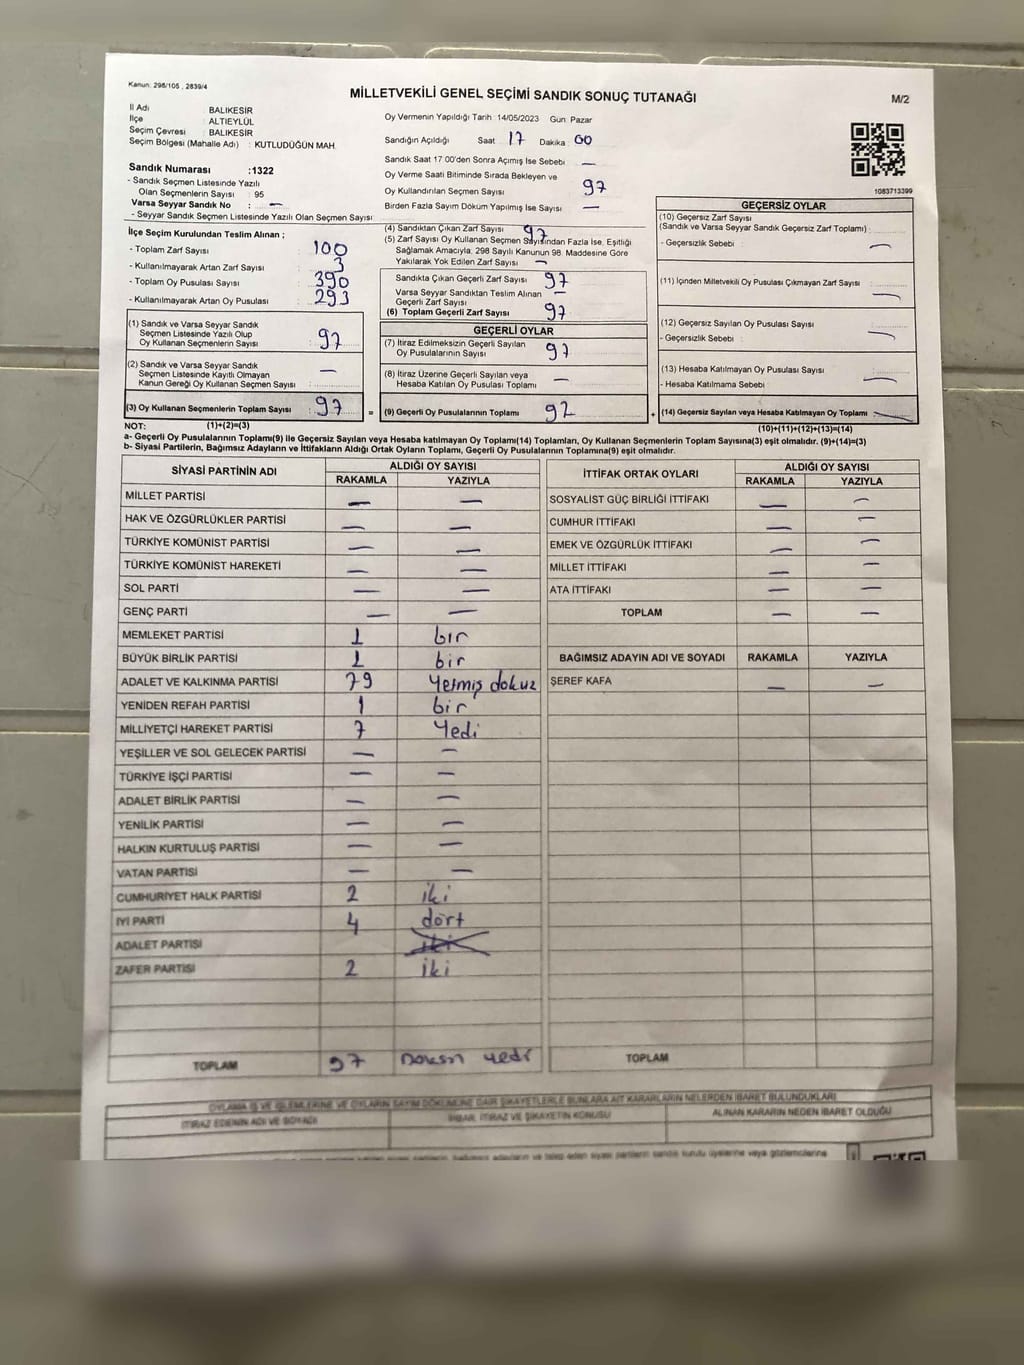 Kanun: 298/105 , 2839/4
MİLLETVEKİLİ GENEL SEÇİMİ SANDIK SONUÇ TUTANAĞI
M/2
İl Adı : BALIKESİR
İlçe : ALTIEYLÜL
Seçim Çevresi : BALIKESİR
Seçim Bölgesi (Mahalle Adı) : KUTLUDÜĞÜN MAH.
Sandık Numarası :1322
- Sandık Seçmen Listesinde Yazılı
Olan Seçmenlerin Sayısı : 95
Varsa Seyyar Sandık No : —
- Seyyar Sandık Seçmen Listesinde Yazılı Olan Seçmen Sayısı:
Oy Vermenin Yapıldığı Tarih :14/05/2023 Gün: Pazar
Sandığın Açıldığı Saat : 17 Dakika : 00
Sandık Saat 17:00'den Sonra Açımış İse Sebebi : —
Oy Verme Saati Bitiminde Sırada Bekleyen ve
Oy Kullandırılan Seçmen Sayısı : 97
Birden Fazla Sayım Döküm Yapılmış İse Sayısı : —
1083713399
İlçe Seçim Kurulundan Teslim Alınan ;
- Toplam Zarf Sayısı : 100
- Kullanılmayarak Artan Zarf Sayısı : 3
- Toplam Oy Pusulası Sayısı : 390
- Kullanılmayarak Artan Oy Pusulası : 293
(1) Sandık ve Varsa Seyyar Sandık
Seçmen Listesinde Yazılı Olup
Oy Kullanan Seçmenlerin Sayısı : 97
(2) Sandık ve Varsa Seyyar Sandık
Seçmen Listesinde Kayıtlı Olmayan
Kanun Gereği Oy Kullanan Seçmen Sayısı : —
(3) Oy Kullanan Seçmenlerin Toplam Sayısı : 97
(1)+(2)=(3)
(4) Sandıktan Çıkan Zarf Sayısı : 97
(5) Zarf Sayısı Oy Kullanan Seçmen Sayısından Fazla İse, Eşitliği
Sağlamak Amacıyla, 298 Sayılı Kanunun 98. Maddesine Göre
Yakılarak Yok Edilen Zarf Sayısı : —
Sandıkta Çıkan Geçerli Zarf Sayısı : 97
Varsa Seyyar Sandıktan Teslim Alınan
Geçerli Zarf Sayısı : —
(6) Toplam Geçerli Zarf Sayısı : 97
GEÇERLİ OYLAR
(7) İtiraz Edilmeksizin Geçerli Sayılan
Oy Pusulalarının Sayısı : 97
(8) İtiraz Üzerine Geçerli Sayılan veya
Hesaba Katılan Oy Pusulası Toplamı : —
= (9) Geçerli Oy Pusulalarının Toplamı : 92
GEÇERSİZ OYLAR
(10) Geçersiz Zarf Sayısı
(Sandık ve Varsa Seyyar Sandık Geçersiz Zarf Toplamı) :
- Geçersizlik Sebebi : —
(11) İçinden Milletvekili Oy Pusulası Çıkmayan Zarf Sayısı : —
(12) Geçersiz Sayılan Oy Pusulası Sayısı :
- Geçersizlik Sebebi : —
(13) Hesaba Katılmayan Oy Pusulası Sayısı :
- Hesaba Katılmama Sebebi : —
+ (14) Geçersiz Sayılan veya Hesaba Katılmayan Oy Toplamı : —
(10)+(11)+(12)+(13)=(14)
NOT:
a- Geçerli Oy Pusulalarının Toplamı(9) ile Geçersiz Sayılan veya Hesaba katılmayan Oy Toplamı(14) Toplamları, Oy Kullanan Seçmenlerin Toplam Sayısına(3) eşit olmalıdır. (9)+(14)=(3)
b- Siyasi Partilerin, Bağımsız Adayların ve İttifakların Aldığı Ortak Oyların Toplamı, Geçerli Oy Pusulalarının Toplamına(9) eşit olmalıdır.
SİYASİ PARTİNİN ADI ALDIĞI OY SAYISI
RAKAMLA YAZIYLA
MİLLET PARTİSİ — —
HAK VE ÖZGÜRLÜKLER PARTİSİ — —
TÜRKİYE KOMÜNİST PARTİSİ — —
TÜRKİYE KOMÜNİST HAREKETİ — —
SOL PARTİ — —
GENÇ PARTİ — —
MEMLEKET PARTİSİ 1 bir
BÜYÜK BİRLİK PARTİSİ 1 bir
ADALET VE KALKINMA PARTİSİ 79 Yetmiş dokuz
YENİDEN REFAH PARTİSİ 1 bir
MİLLİYETÇİ HAREKET PARTİSİ 7 Yedi
YEŞİLLER VE SOL GELECEK PARTİSİ — —
TÜRKİYE İŞÇİ PARTİSİ — —
ADALET BİRLİK PARTİSİ — —
YENİLİK PARTİSİ — —
HALKIN KURTULUŞ PARTİSİ — —
VATAN PARTİSİ — —
CUMHURİYET HALK PARTİSİ 2 iki
İYİ PARTİ 4 dört
ADALET PARTİSİ iki
ZAFER PARTİSİ 2 iki
TOPLAM 97 Doksn yedi
İTTİFAK ORTAK OYLARI ALDIĞI OY SAYISI
RAKAMLA YAZIYLA
SOSYALİST GÜÇ BİRLİĞİ İTTİFAKI — —
CUMHUR İTTİFAKI — —
EMEK VE ÖZGÜRLÜK İTTİFAKI — —
MİLLET İTTİFAKI — —
ATA İTTİFAKI — —
TOPLAM — —
BAĞIMSIZ ADAYIN ADI VE SOYADI RAKAMLA YAZIYLA
ŞEREF KAFA — —
TOPLAM
OYLAMA İŞ VE İŞLEMLERİNE VE OYLARIN SAYIM DÖKÜMÜNE DAİR ŞİKAYETLERLE BUNLARA AİT KARARLARIN NELERDEN İBARET BULUNDUKLARI
İTİRAZ EDENİN ADI VE SOYADI İHBAR, İTİRAZ VE ŞİKAYETİN KONUSU ALINAN KARARIN NEDEN İBARET OLDUĞU